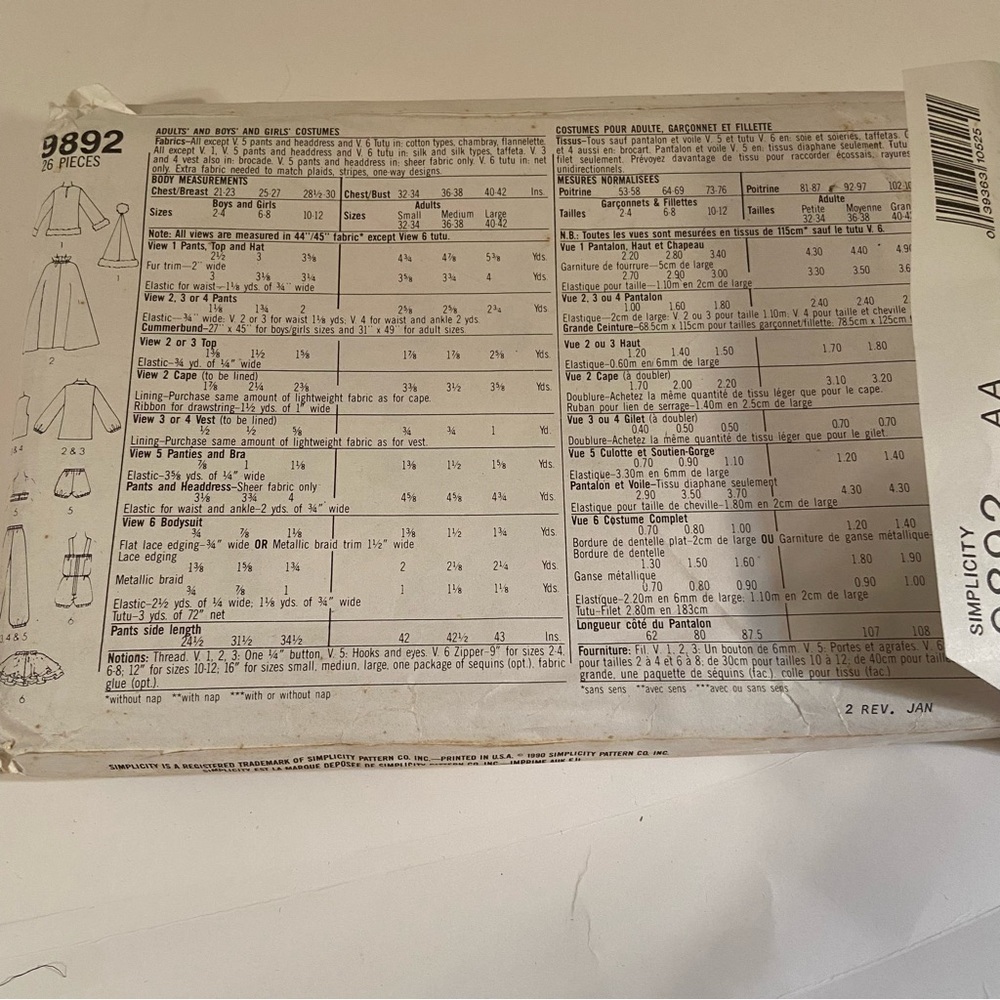 9892
26 PIECES
ADULTS' AND BOYS' AND GIRLS' COSTUMES
Fabrics—All except V. 5 pants and headdress and V. 6 Tutu in: cotton types, chambray, flannelette.
All except V. 1, V. 5 pants and headdress and V. 6 tutu in: silk and silk types, taffeta. V. 3
and 4 vest also in: brocade. V. 5 pants and headdress in: sheer fabric only. V. 6 tutu in: net
only. Extra fabric needed to match plaids, stripes, one-way designs.
BODY MEASUREMENTS
Chest/Breast 21-23 25-27 28½-30 Chest/Bust 32-34 36-38 40-42 Ins.
Boys and Girls Adults
Sizes 2-4 6-8 10-12 Sizes Small Medium Large
32-34 36-38 40-42
Note: All views are measured in 44"/45" fabric* except View 6 tutu.
View 1 Pants, Top and Hat
2½ 3 3⅝ 4¾ 4⅞ 5⅜ Yds.
Fur trim—2" wide
3 3⅛ 3¼ 3⅝ 3⅜ 4 Yds.
Elastic for waist—1⅛ yds. of ¾" wide
View 2, 3 or 4 Pants
1⅛ 1¾ 2 2⅝ 2⅝ 2¾ Yds.
Elastic—¾" wide: V. 2 or 3 for waist 1⅛ yds; V. 4 for waist and ankle 2 yds.
Cummerbund—27" x 45" for boys/girls sizes and 31" x 49" for adult sizes.
View 2 or 3 Top
1⅜ 1½ 1⅝ 1⅞ 1⅞ 2⅝ Yds.
Elastic—¾ yd. of ¼" wide
View 2 Cape (to be lined)
1⅞ 2¼ 2⅜ 3⅜ 3½ 3⅝ Yds.
Lining—Purchase same amount of lightweight fabric as for cape.
Ribbon for drawstring—1½ yds. of 1" wide
View 3 or 4 Vest (to be lined)
½ ½ ⅝ ¾ ¾ 1 Yd.
Lining—Purchase same amount of lightweight fabric as for vest.
View 5 Panties and Bra
⅞ 1 1⅛ 1⅜ 1½ 1⅝ Yds.
Elastic—3⅝ yds. of ¼" wide
Pants and Headdress—Sheer fabric only
3⅛ 3¾ 4 4⅝ 4⅝ 4¾ Yds.
Elastic for waist and ankle—2 yds. of ¾" wide
View 6 Bodysuit
¾ ⅞ 1⅛ 1⅜ 1½ 1¾ Yds.
Flat lace edging—¾" wide OR Metallic braid trim 1½" wide
Lace edging
1⅜ 1⅝ 1¾ 2 2⅛ 2¼ Yds.
Metallic braid
¾ ⅞ 1 1 1⅛ 1⅛ Yds.
Elastic—2½ yds. of ¼ wide; 1⅛ yds. of ¾" wide
Tutu—3 yds. of 72" net
Pants side length
24½ 31½ 34½ 42 42½ 43 Ins.
Notions: Thread. V. 1, 2, 3: One ¼" button, V. 5: Hooks and eyes. V. 6 Zipper—9" for sizes 2-4,
6-8; 12" for sizes 10-12; 16" for sizes small, mediun, large, one package of sequins (opt.), fabric
glue (opt.).
*without nap **with nap ***with or without nap
COSTUMES POUR ADULTE, GARÇONNET ET FILLETTE
Tissus—Tous sauf pantalon et voile V. 5 et tutu V. 6 en: soie et soieries, taffetas.
et 4 aussi en: brocart. Pantalon et voile V. 5 en: tissus diaphane seulement. Tutu
filet seulement. Prévoyez davantage de tissu pour raccorder écossais, rayures
unidirectionnels.
MESURES NORMALISÉES
Poitrine 53-58 64-69 73-76 Poitrine 81-87 92-97 102-10
Garçonnets & Fillettes Adulte
Tailles 2-4 6-8 10-12 Tailles Petite Moyenne Gran
32-34 36-38 40-4
N.B.: Toutes les vues sont mesurées en tissus de 115cm* sauf le tutu V. 6.
Vue 1 Pantalon, Haut et Chapeau
2.20 2.80 3.40 4.30 4.40 4.90
Garniture de fourrure—5cm de large
2.70 2.90 3.00 3.30 3.50 3.6
Elastique pour taille—1.10m en 2cm de large
Vue 2, 3 ou 4 Pantalon
1.00 1.60 1.80 2.40 2.40 2.
Elastique—2cm de large: V. 2 ou 3 pour taille 1.10m: V. 4 pour taille et cheville
Grande Ceinture—68.5cm x 115cm pour tailles garçonnet/fillette: 78.5cm x 125cm
Vue 2 ou 3 Haut
1.20 1.40 1.50 1.70 1.80
Elastique—0.60m en 6mm de large
Vue 2 Cape (à doubler)
1.70 2.00 2.20 3.10 3.20
Doublure—Achetez la même quantité de tissu léger que pour le cape.
Ruban pour lien de serrage—1.40m en 2.5cm de large
Vue 3 ou 4 Gilet (à doubler)
0.40 0.50 0.50 0.70 0.70
Doublure—Achetez la même quantité de tissu léger que pour le gilet.
Vue 5 Culotte et Soutien-Gorge
0.70 0.90 1.10 1.20 1.40
Elastique—3.30m en 6mm de large
Pantalon et Voile—Tissu diaphane seulement
2.90 3.50 3.70 4.30 4.30
Elastique pour taille de cheville—1.80m en 2cm de large
Vue 6 Costume Complet
0.70 0.80 1.00 1.20 1.40
Bordure de dentelle plat—2cm de large OU Garniture de ganse métallique
Bordure de dentelle
1.30 1.50 1.60 1.80 1.90
Ganse métallique
0.70 0.80 0.90 0.90 1.00
Elastique—2.20m en 6mm de large; 1.10m en 2cm de large
Tutu—Filet 2.80m en 183cm
Longueur côté du Pantalon
62 80 87.5 107 108
Fourniture: Fil. V. 1, 2, 3: Un bouton de 6mm. V. 5: Portes et agrafes. V. 6
pour tailles 2 à 4 et 6 à 8; de 30cm pour tailles 10 à 12; de 40cm pour taill
grande, une paquette de sequins (fac.) colle pour tissu (fac.)
*sans sens **avec sens ***avec ou sans sens
2 REV. JAN
1
1
2
2 & 3
5
5
14 & 5
6
6
SIMPLICITY IS A REGISTERED TRADEMARK OF SIMPLICITY PATTERN CO. INC.—PRINTED IN U.S.A. © 1990 SIMPLICITY PATTERN CO. INC.
SIMPLICITY EST LA MARQUE DEPOSÉE DE SIMPLICITY PATTERN CO. INC.
0 39363 10525
SIMPLICITY
9892 AA